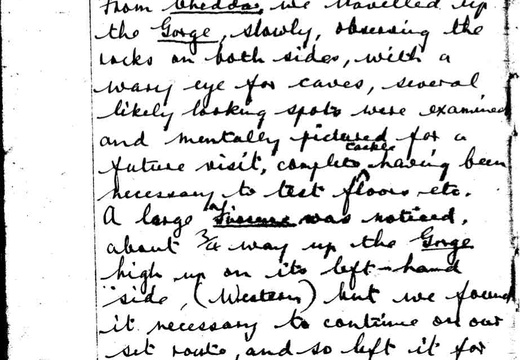 From Cheddar, we travelled up
the Gorge, slowly, observing the
rocks on both sides, with a
wary eye for caves, several
likely looking spots were examined
and mentally pictured for a
future visit, complete tackle having been
necessary to test floors etc.
A large fissure was noticed,
about 3/4 way up the Gorge
high up on its left-hand
side, (Western) but we found
it necessary to continue on our
set route, and so left it for